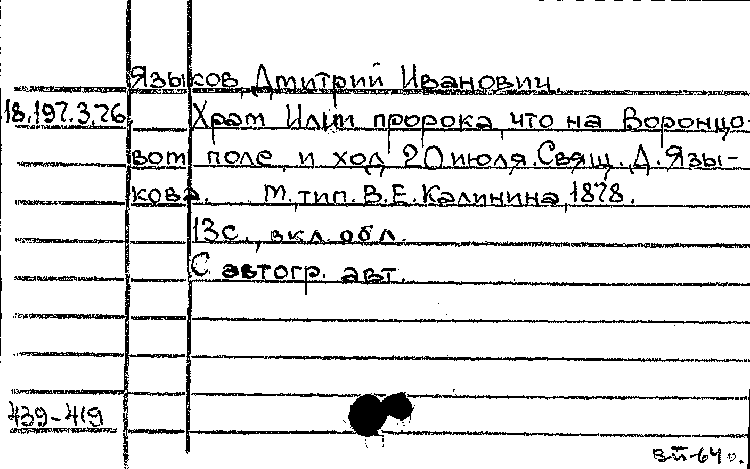 Языков, Дмитрий Иванович.
18.197.3.26
Храм Илии пророка, что на Воронцо-
вом поле, и ход 20 июля. Свящ. Д. Язы-
кова. М., тип. В.Е. Калинина, 1878.
13с., вкл. обл.
С автогр. авт.
439-419
ВП-64 г.